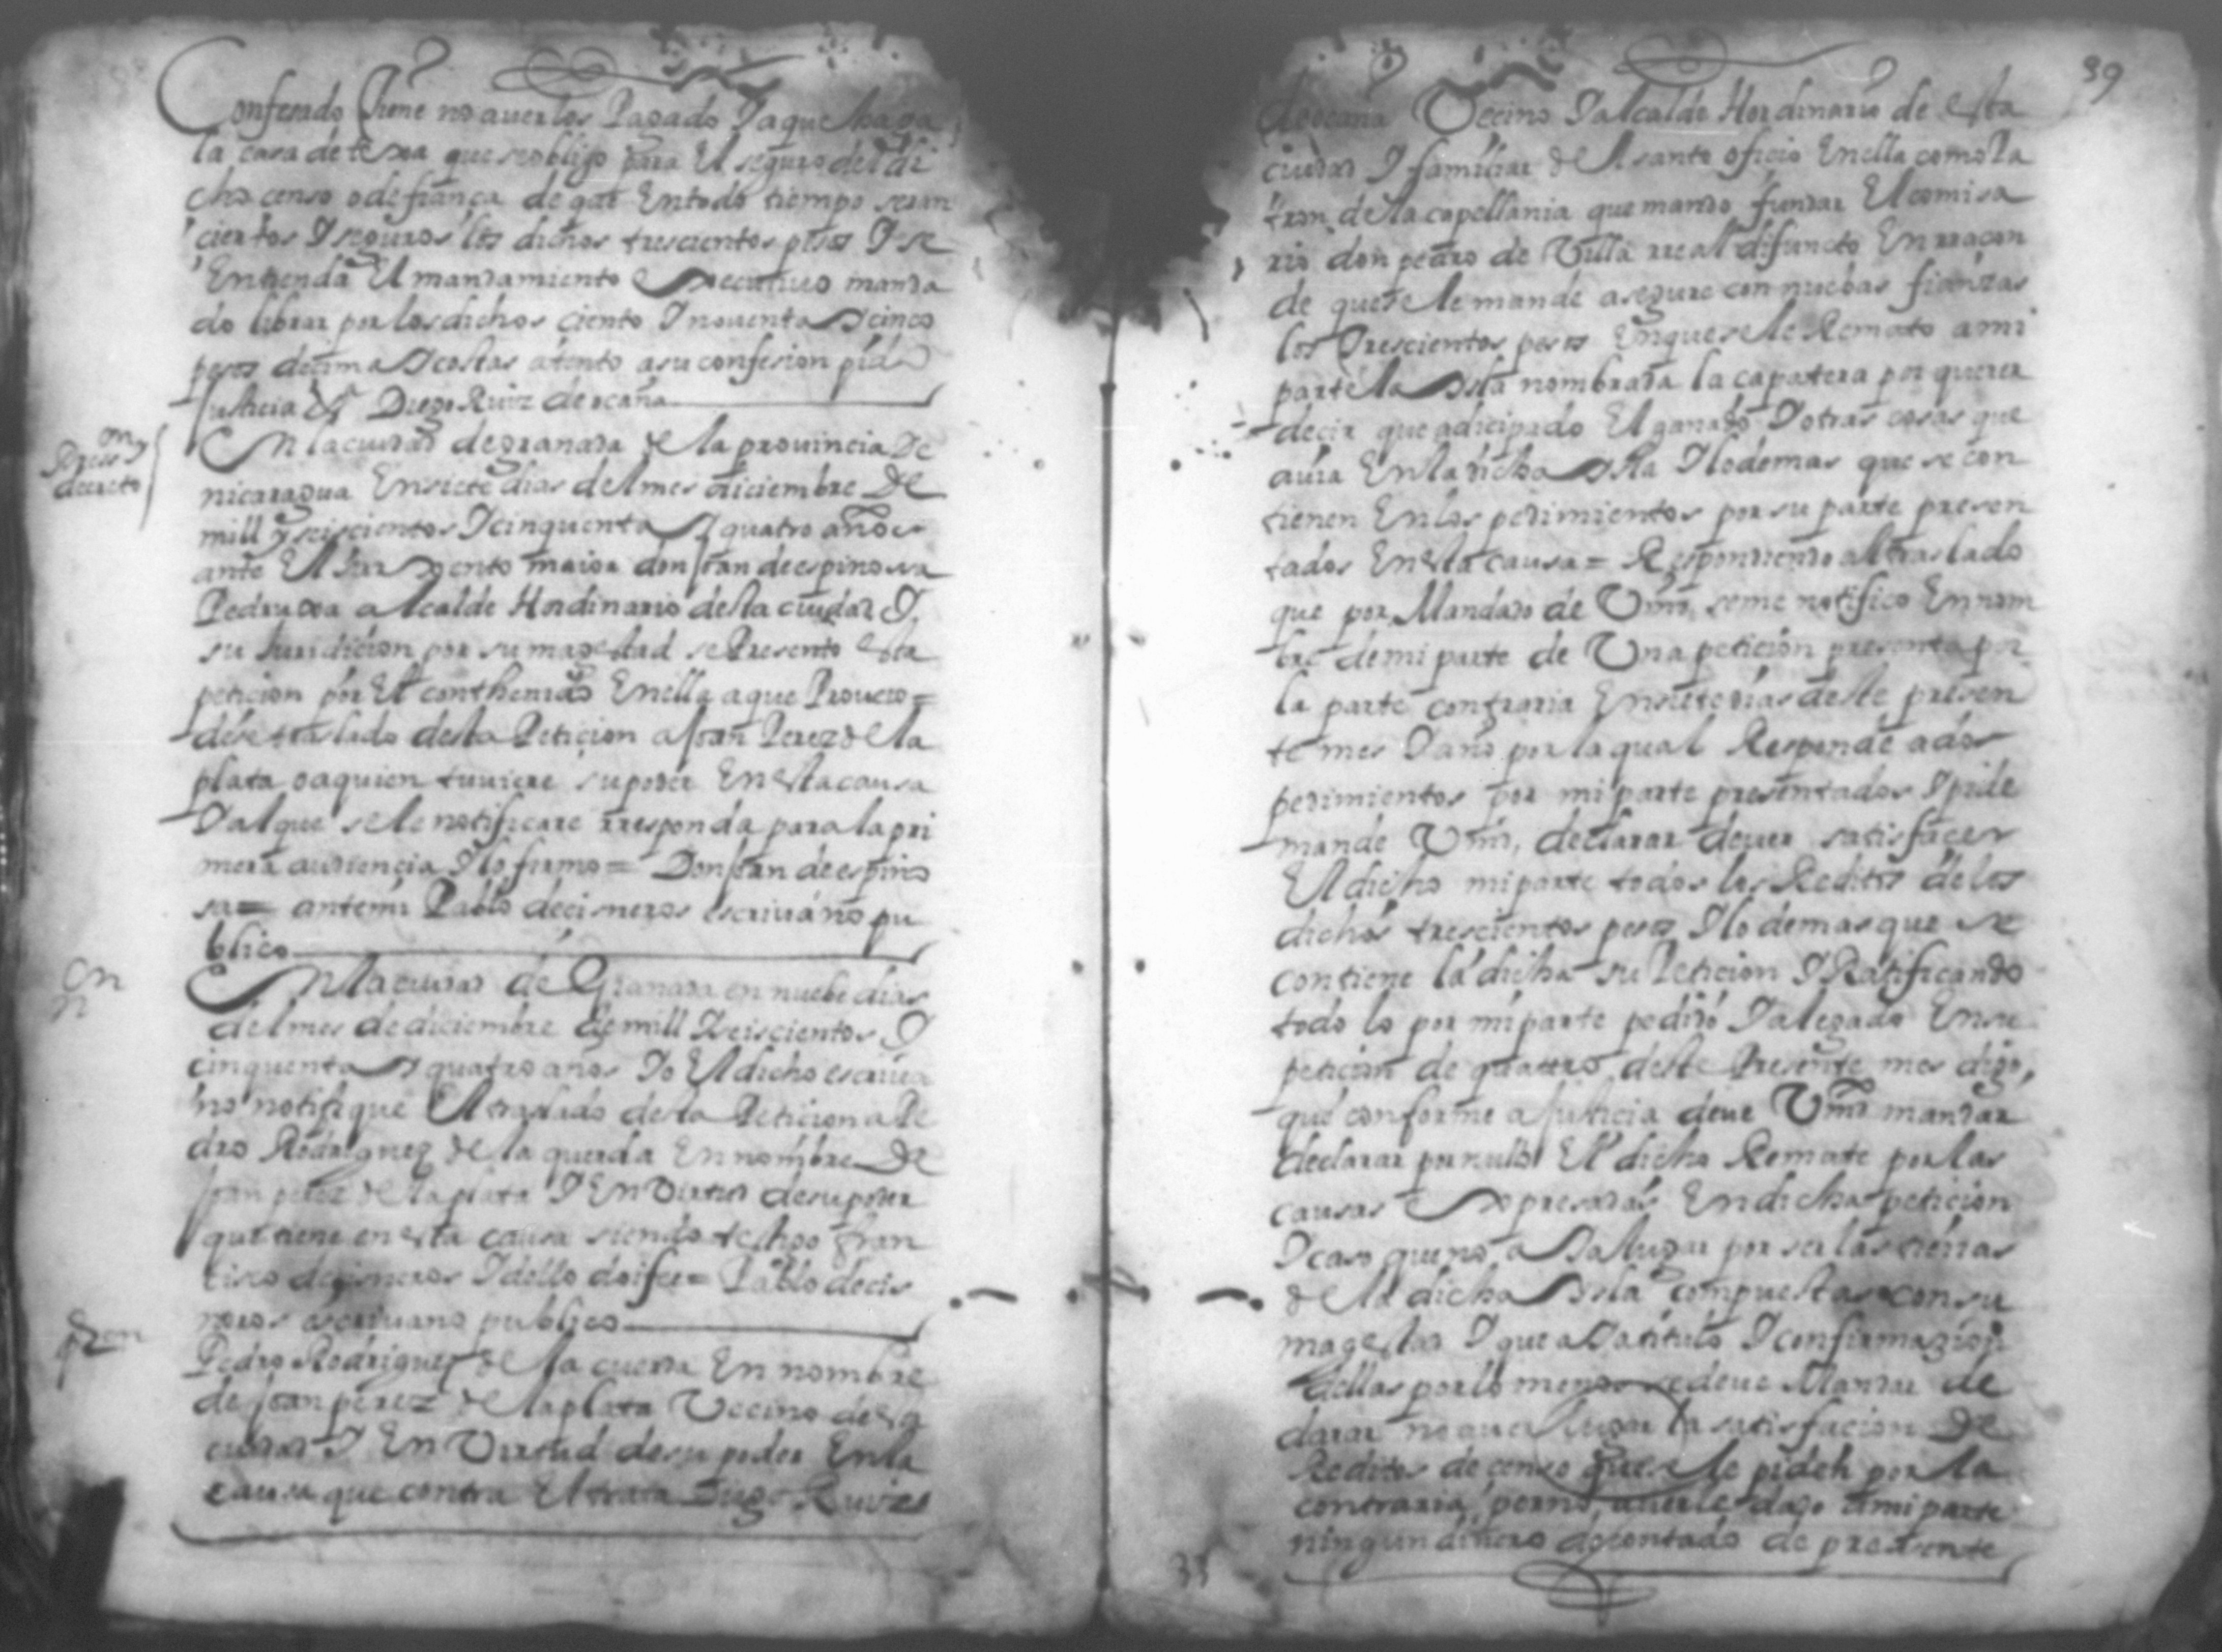 Confesado tiene no auerlos Pagado I a que haga
la casa de texa que se obligo para El seguro del di
cho censo o de fiança de que En todo tiempo seran
ciertos I seguros los dichos trescientos pesos I se
Entienda El mandamiento executiuo manda
do librar por los dichos ciento I nouenta y cinco
pesos decima y costas atento a su confesion pido
Justicia Diego Ruiz de ocaña
decreto
En la ciudad de granada de la prouincia De
nicaragua En siete dias del mes diciembre De
mill y seiscientos I cinquenta y quatro años
ante El sargento maior don Joan de espinossa
Pedruxa alcalde Hordinario desta ciudad I
su Juridicion por su magestad se Presento esta
peticion por El conthenido En ella a que Proueio =
dese traslado desta Peticion a Joan Perez de la
plata o a quien tuuiere su poder En esta causa
I al que se le notificare rresponda para la pri
mera audiencia I lo firmo = Don Joan de espino
sa = ante mi Pablo de cisneros escriuano pu
blico
En
n
En la ciudad de Granada en nuebe dias
del mes de diciembre de mill I seiscientos I
cinquenta y quatro años Io El dicho escriua
no notifique El traslado desta Peticion a Pe
dro Rodriguez de la querda En nombre De
Joan perez de la plata I En Virtud de su poder
que tiene en esta causa siendo testigo fran
cisco de cisneros I dello doi fee = Pablo de cis
neros escriuano publico
Pedro Rodriguez de la cuerda En nombre
de Joan perez de la plata Vecino desta
ciudad I En Virtud de su poder En la
causa que contra El trata Diego Ruiz
39
de ocaña Vecino I alcalde Hordinario de esta
ciudad I familiar de El santo oficio En ella como Pa
tron de la capellania que mando fundar El comisa
rio don pedro de Villa rreal difuncto En rraçon
de que se le mande asegure con nuebas fianzas
los Trescientos pesos En que se le Remato a mi
parte la ysla nombrada la çapatera por querer
decir que a dicipado El ganado I otras cosas que
auia En la dicha ysla I lo demas que se con
tienen En los pedimientos por su parte presen
tados En esta causa = Respondiendo al traslado
que por Mandado de Vmd, se me notifico En nom
bre de mi parte de Vna peticion presenta por
la parte contraria En siete dias deste presen
te mes I año por la qual Responde a dos
pedimientos por mi parte presentados I pide
mande Vmd, declarar deuer satisfacer
El dicho mi parte todos los Reditos de los
dichos trescientos pesos I lo demas que se
contiene la dicha su Peticion I Ratificando
todo lo por mi parte pedido I alegado En su
peticion de quatro deste Presente mes digo,
que conforme a Justicia deue Vmd mandar
declarar por nulo El dicho Remate por las
causas Expresadas En dicha peticion
I caso que no aya lugar por ser las tierras
de la dicha ysla compuestas con su
magestad I que aya titulo I confirmazion
dellas por lo menos se deue Mandar de
clarar no auer lugar la satisfacion De
Reditos de censo que se le piden por la
contraria, por no auerle dado a mi parte
ningun dinero de contado de presente
33